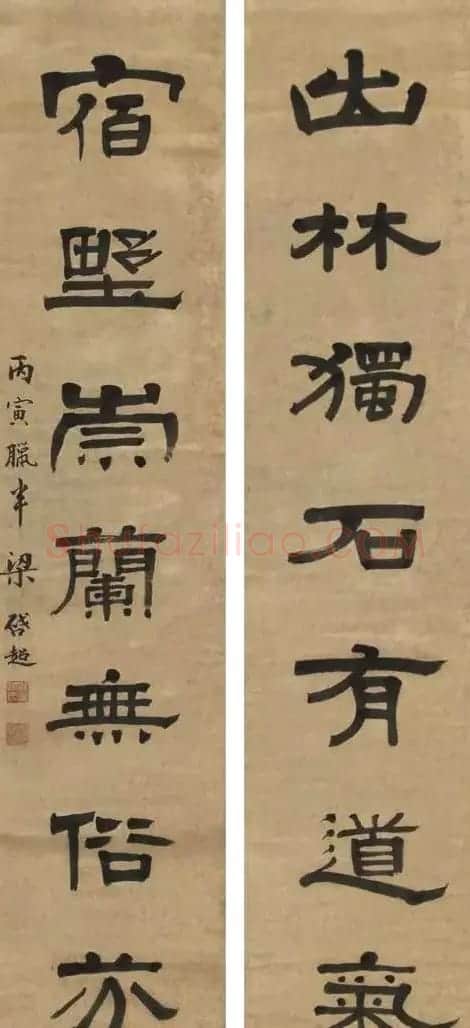 出林獨石有道氣
宿墅崇蘭無俗
丙寅臘半梁啓超
Shufaziliao.COM